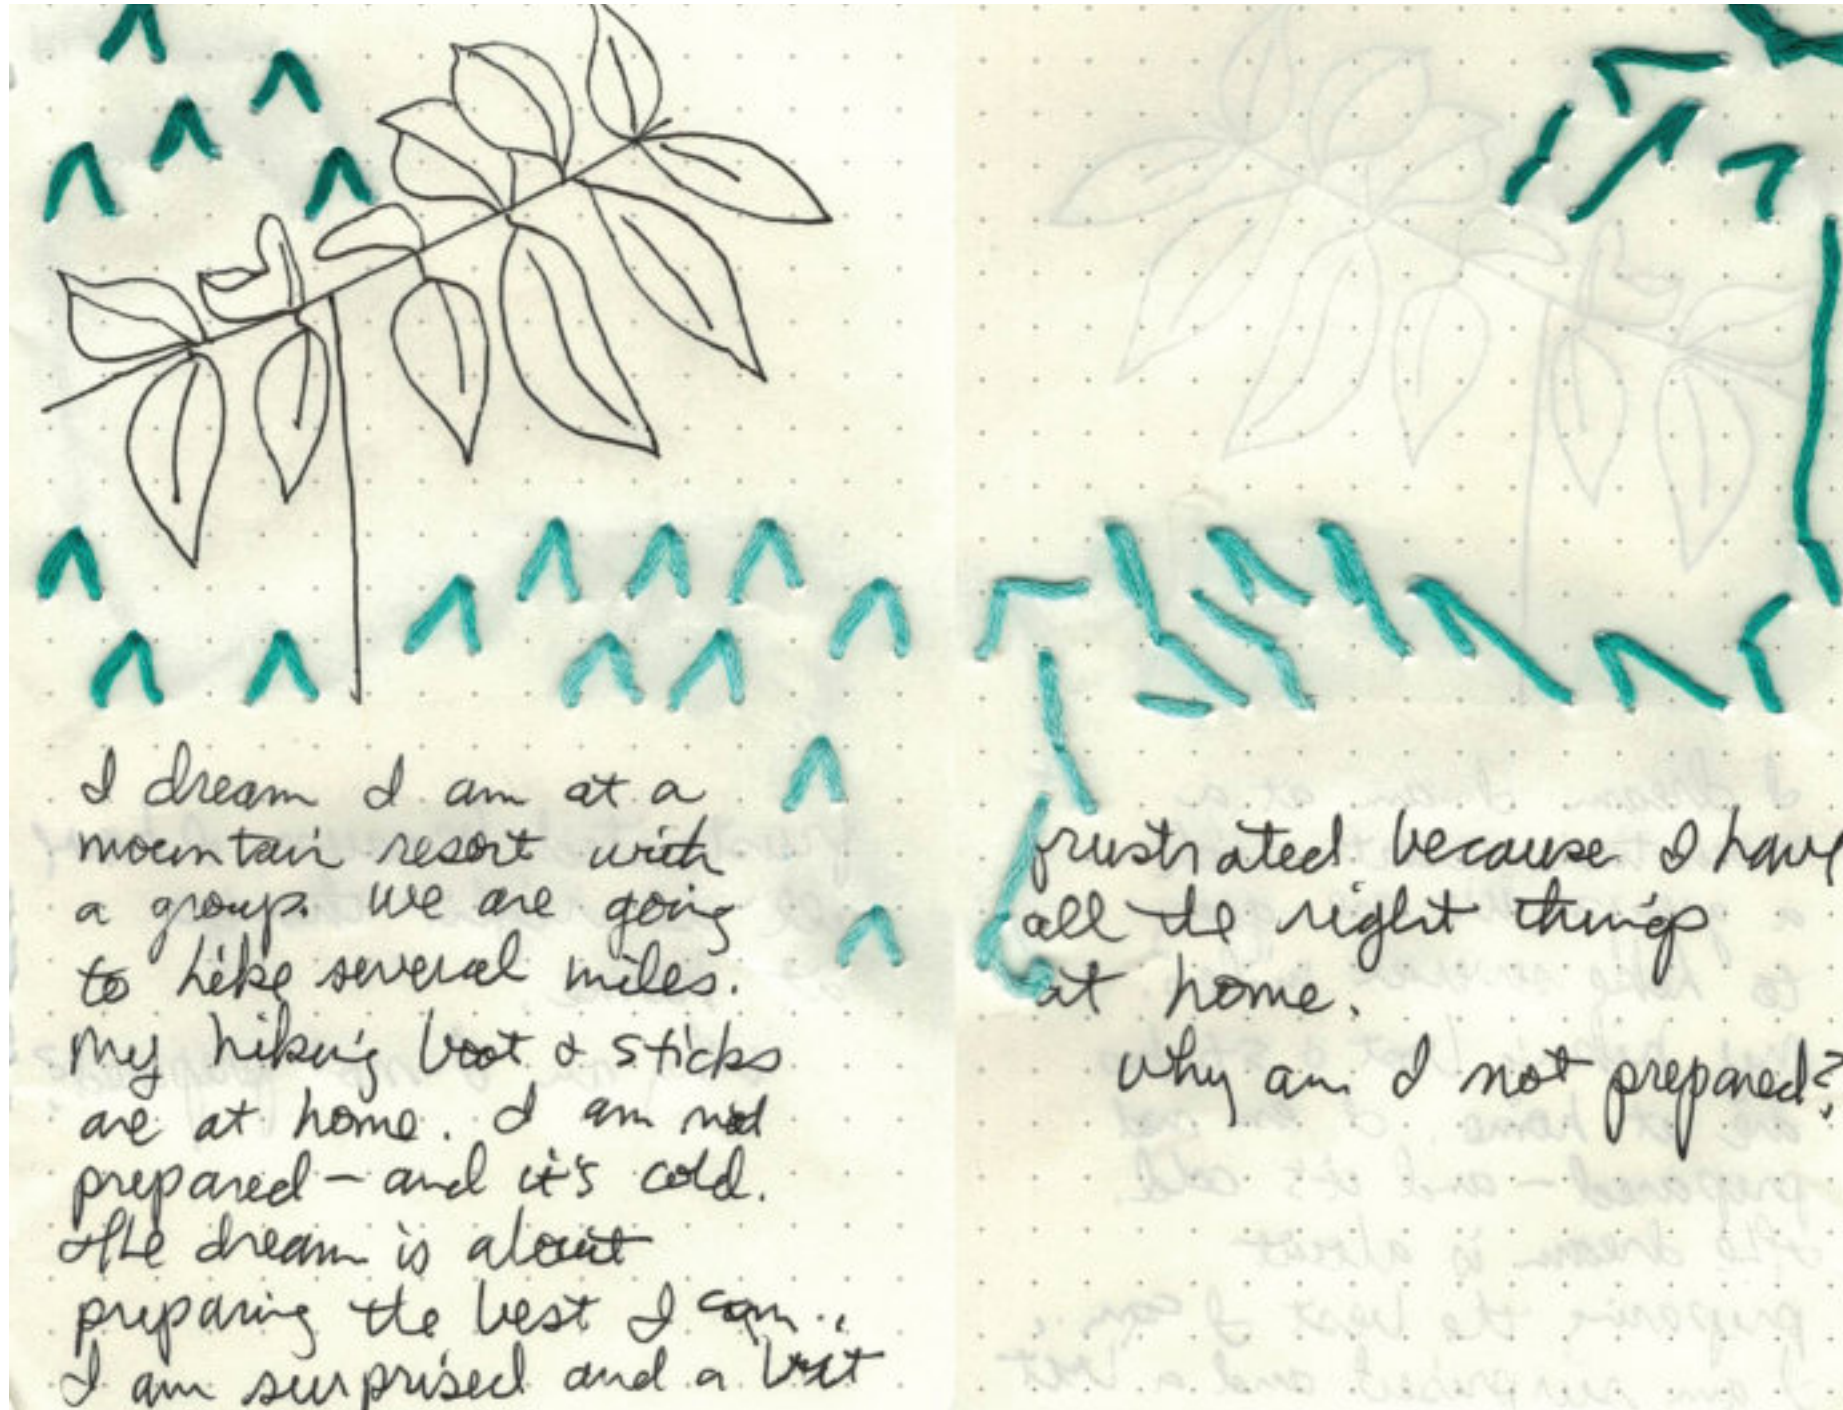 I dream I am at a
mountain resort with
a group. We are going
to hike several miles.
My hiking boot & sticks
are at home. I am not
prepared – and it's cold.
The dream is about
preparing the best I can..
I am surprised and a bit
frustrated because I have
all the right things
at home.
Why am I not prepared?